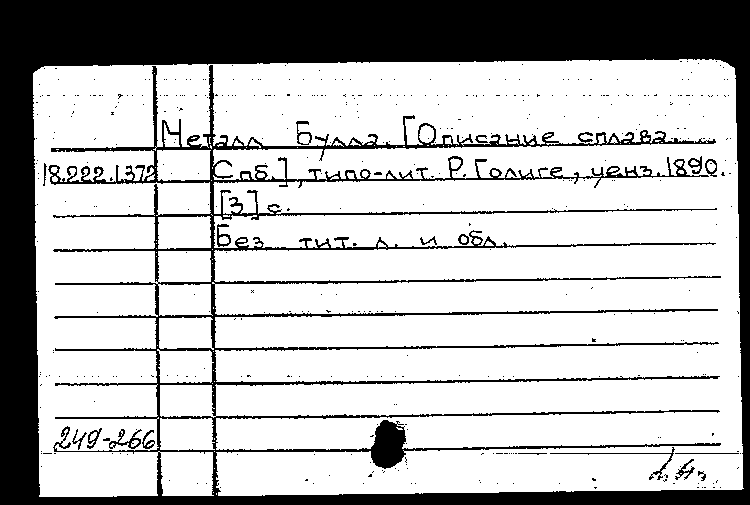 Металл Булла. [Описание сплава.
18.222.1.372 Спб.], типо-лит. Р. Голике, ценз. 1890.
[3] с.
Без тит. л. и обл.
249-266